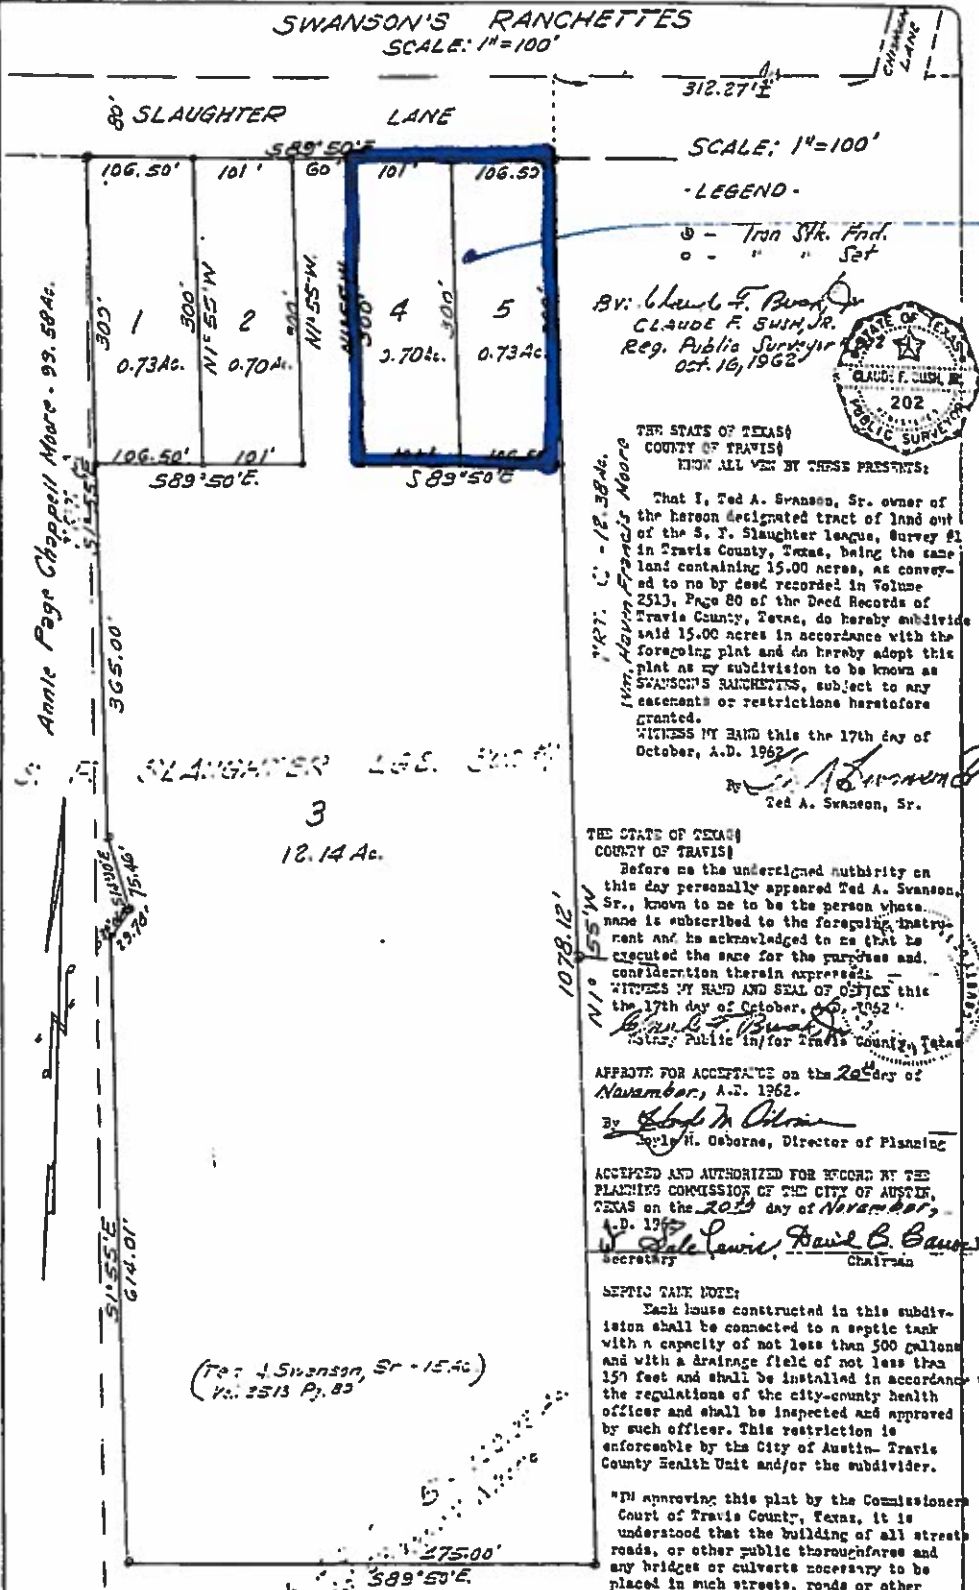 SWANSON'S RANCHETTES
SCALE: 1"=100'
CHISHOLM LANE
312.27'±
80' SLAUGHTER LANE
S89°50'E
SCALE: 1"=100'
106.50' 101' 60' 101' 106.50
- LEGEND -
Iron Stk. Fnd.
" " Set
By: Claude F. Bush, Jr.
CLAUDE F. BUSH, JR.
Reg. Public Surveyor
Oct. 16, 1962
STATE OF TEXAS
CLAUDE F. BUSH, JR.
202
PUBLIC SURVEYOR
300' 1 300' N1°55'W 2 300' N1°55'W N1°55'W 300' 4 300' 5 300'
0.73Ac. 0.70Ac. 0.70Ac. 0.73Ac.
106.50' 101'
S89°50'E. S89°50'E
Annie Page Chappell Moore - 99.58 Ac.
S1°55'E
365.00'
TRT. C - 12.38 Ac.
Wm. Haven Francis Moore
THE STATE OF TEXAS§
COUNTY OF TRAVIS§
KNOW ALL MEN BY THESE PRESENTS:
That I, Ted A. Swanson, Sr. owner of
the hereon designated tract of land out
of the S. F. Slaughter league, Survey #1
in Travis County, Texas, being the same
land containing 15.00 acres, as convey-
ed to me by deed recorded in Volume
2513, Page 80 of the Deed Records of
Travis County, Texas, do hereby subdivide
said 15.00 acres in accordance with the
foregoing plat and do hereby adopt this
plat as my subdivision to be known as
SWANSON'S RANCHETTES, subject to any
easements or restrictions heretofore
granted.
WITNESS MY HAND this the 17th day of
October, A.D. 1962
By
Ted A. Swanson, Sr.
S. F. SLAUGHTER LGE. SUR. #1
3
12.14 Ac.
75.46'
29.70'
1078.12'
N1°55'W
THE STATE OF TEXAS§
COUNTY OF TRAVIS§
Before me the undersigned authirity on
this day personally appeared Ted A. Swanson,
Sr., known to me to be the person whose
name is subscribed to the foregoing instru-
ment and he acknowledged to me that he
executed the same for the purposes and
consideration therein expressed.
WITNESS MY HAND AND SEAL OF OFFICE this
the 17th day of October, A.D. 1962
Claude F. Bush, Jr.
Notary Public in/for Travis County, Texas
APPROVE FOR ACCEPTANCE on the 20th day of
November, A.D. 1962.
By Hoyle M. Osborne
Hoyle M. Osborne, Director of Planning
ACCEPTED AND AUTHORIZED FOR RECORD BY THE
PLANNING COMMISSION OF THE CITY OF AUSTIN,
TEXAS on the 20th day of November,
A.D. 1962
Secretary Chairman
S1°55'E
614.01'
SEPTIC TANK NOTE:
Each house constructed in this subdiv-
ision shall be connected to a septic tank
with a capacity of not less than 500 gallons
and with a drainage field of not less than
150 feet and shall be installed in accordance
the regulations of the city-county health
officer and shall be inspected and approved
by such officer. This restriction is
enforceable by the City of Austin- Travis
County Health Unit and/or the subdivider.
(Ted A Swanson, Sr - 15 Ac)
Vo. 2513 Pg. 80
475.00'
S89°50'E.
"In approving this plat by the Commissioners
Court of Travis County, Texas, it is
understood that the building of all streets
roads, or other public thoroughfares and
any bridges or culverts necessary to be
placed in such streets, roads or other